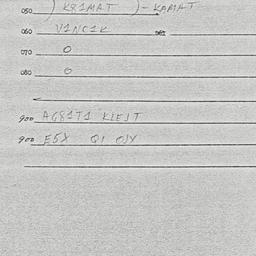 050 ) K81MAT ) - KAMAT
060 V1NC1K
070 O
080 O
900 AG81T1 KLEJT
900 E5X Q1 OJY